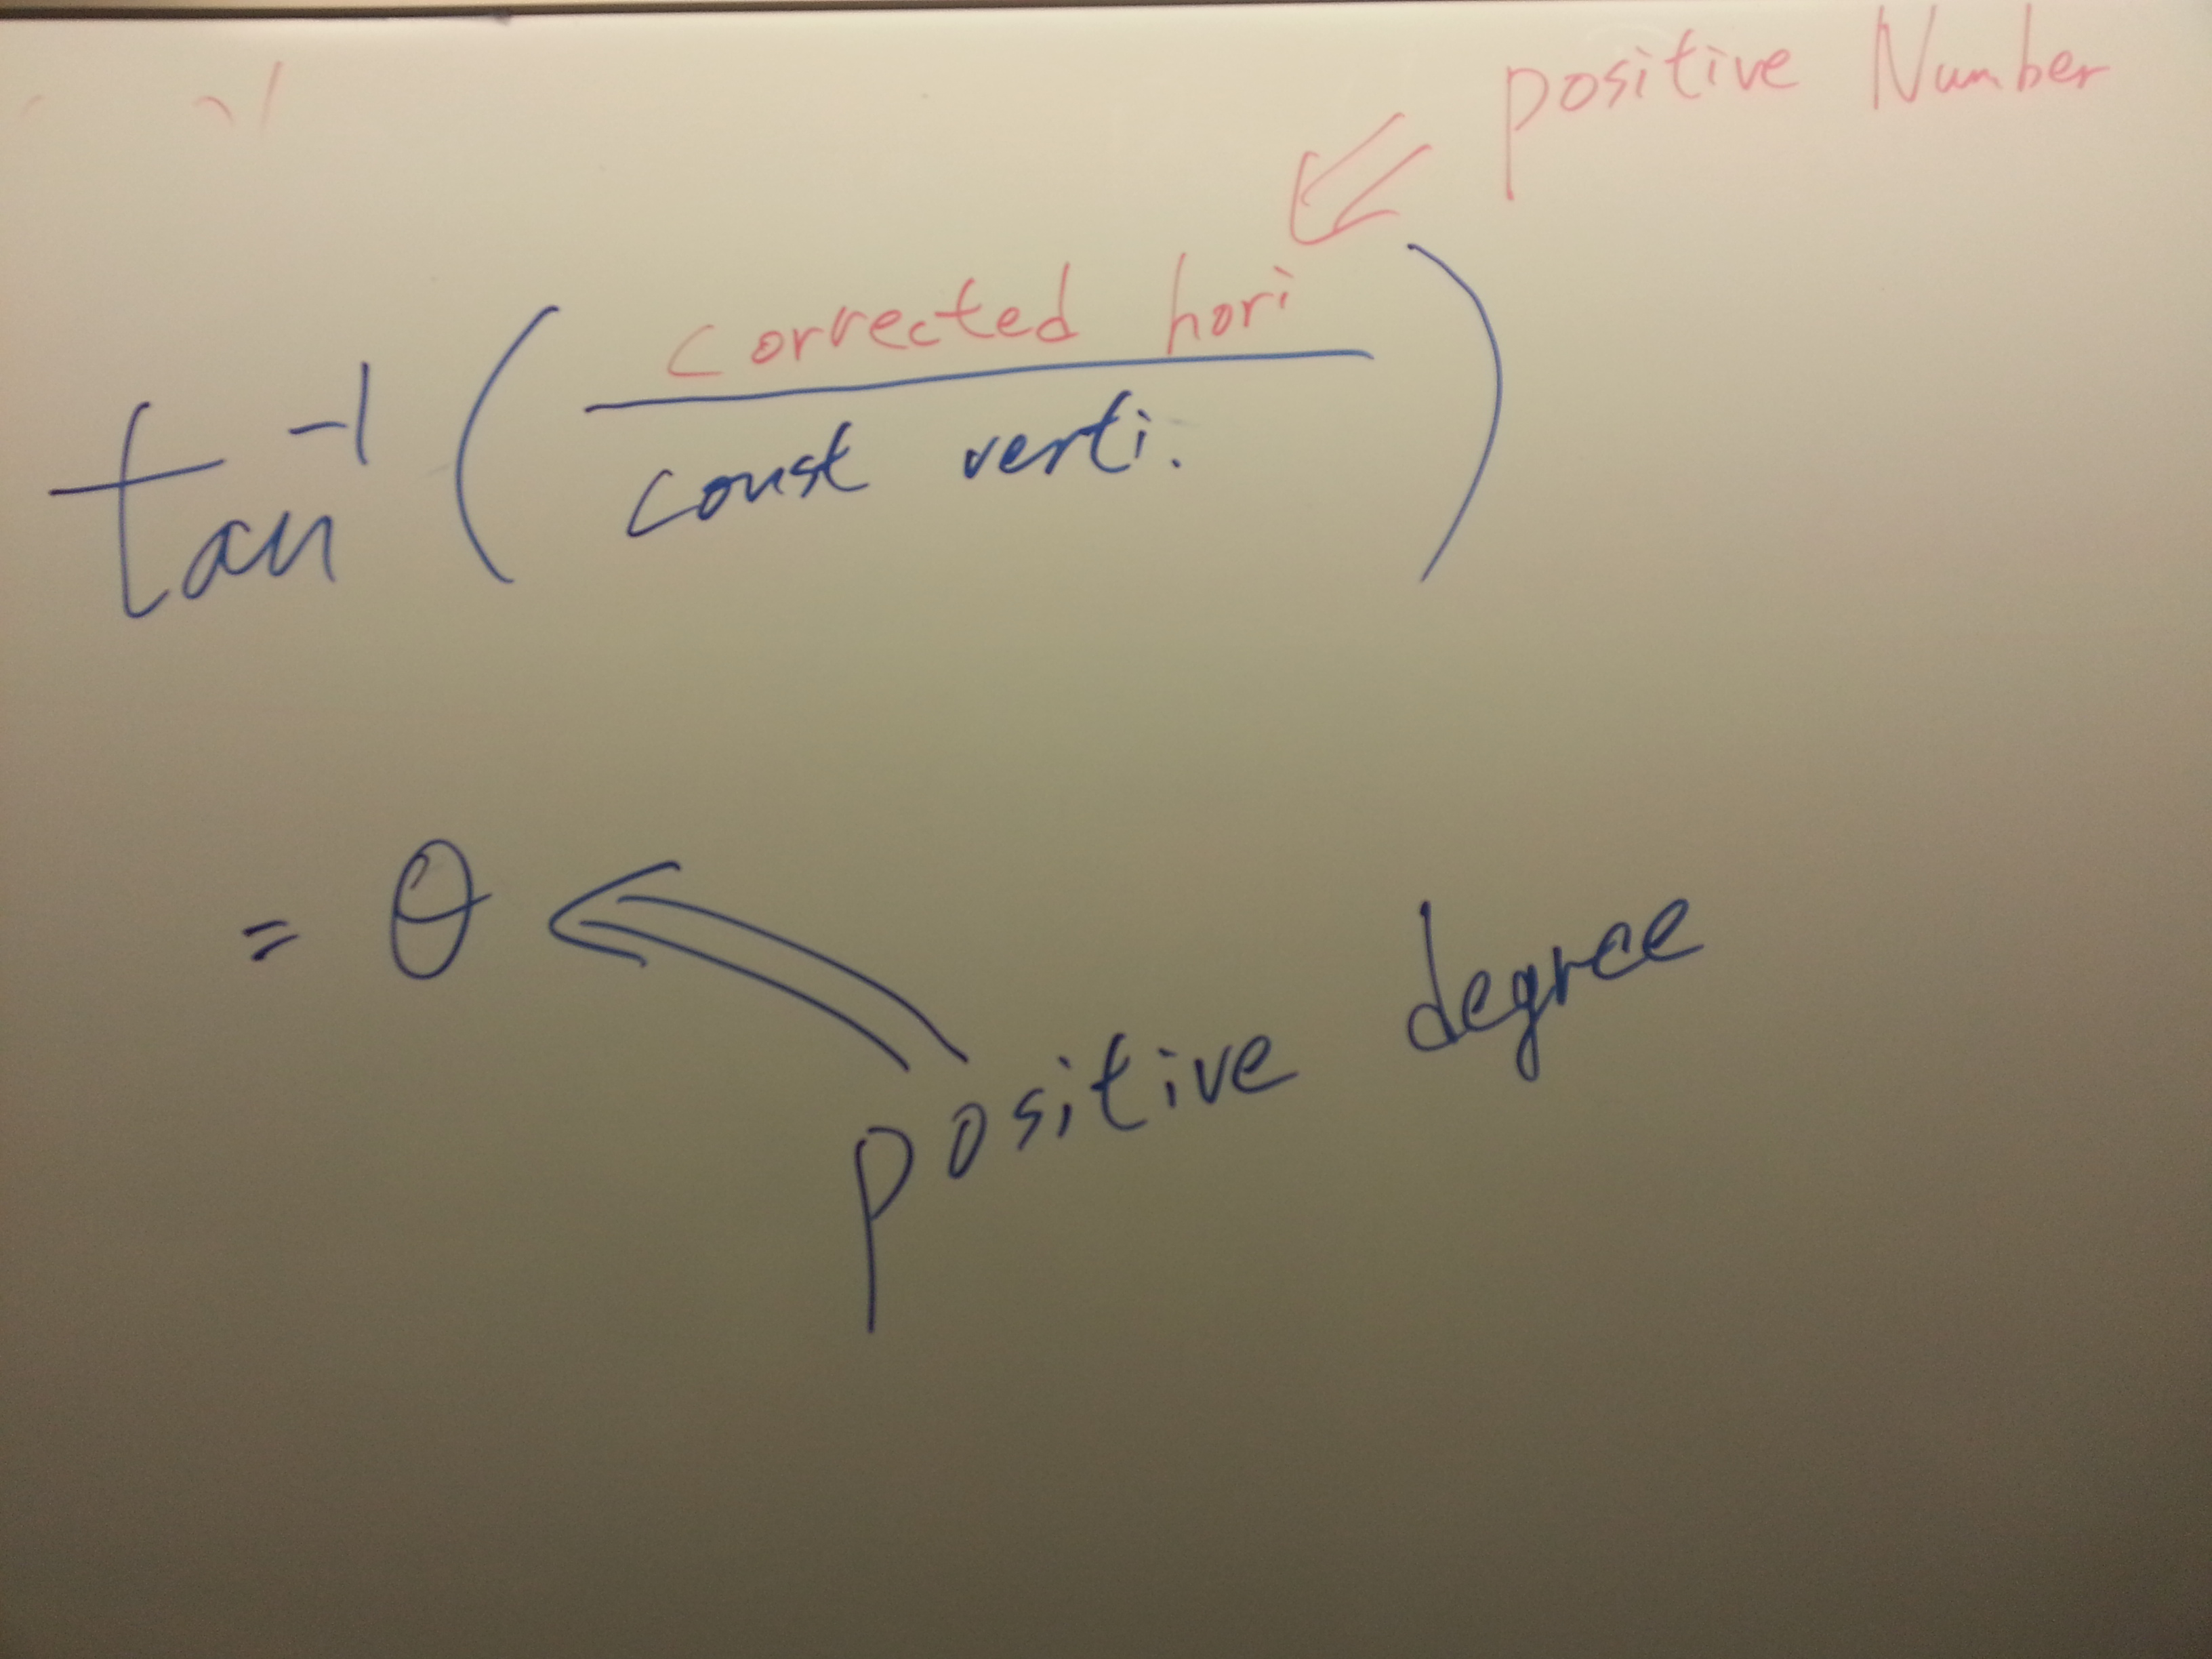 positive Number
tan⁻¹ ( corrected hori
const verti. )
= θ
positive degree